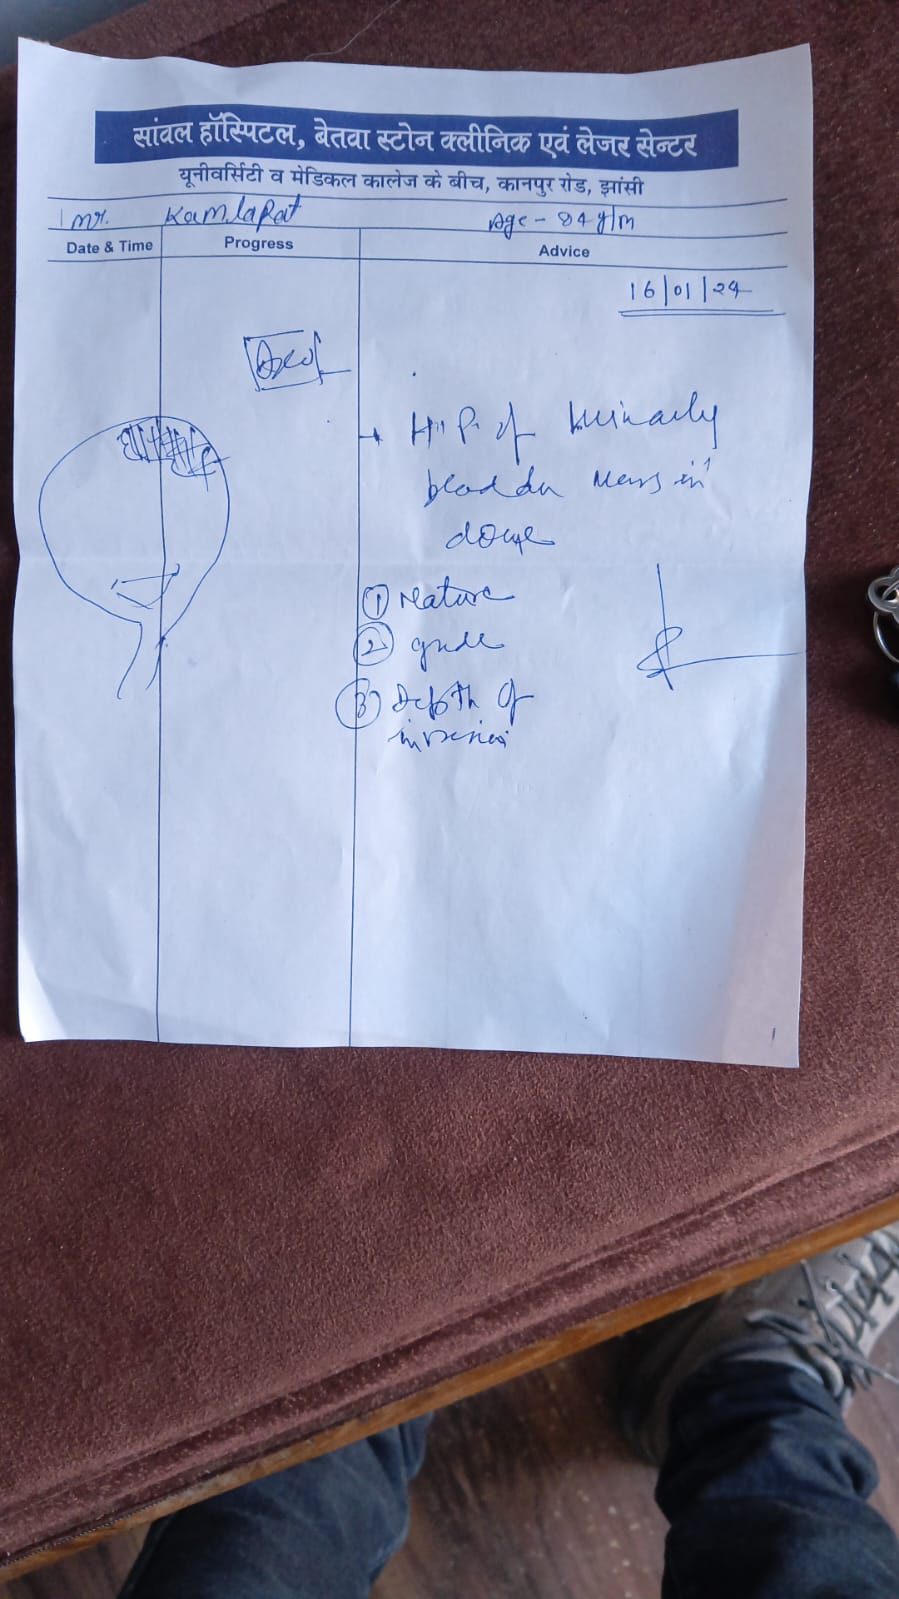 सांवल हॉस्पिटल, बेतवा स्टोन क्लीनिक एवं लेजर सेन्टर
यूनीवर्सिटी व मेडिकल कालेज के बीच, कानपुर रोड, झांसी
Mr. Kamlapat Age - 84 y/m
Date & Time Progress Advice
16/01/24
→ H.P. of Urinary
bladder Mass in
dome
① Nature
② grade
③ Depth of
invasion